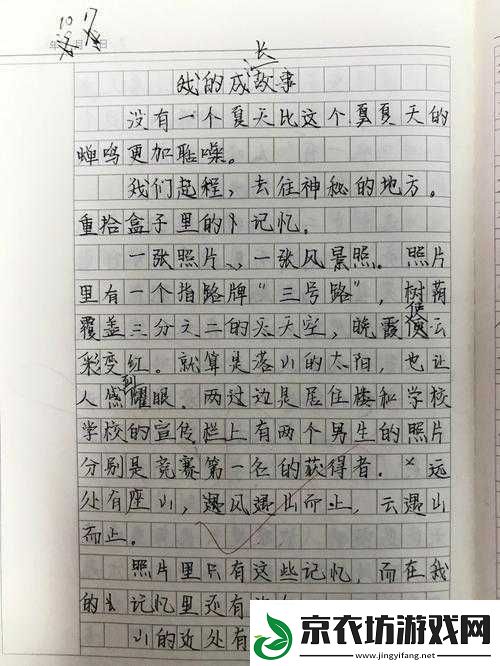 10 17
年 月 日
我的成长故事
没有一个夏天比这个夏夏天的
蝉鸣更加聒噪。
我们起程，去往神秘的地方。
重拾盒子里的卜记忆。
一张照片、一张风景照。照片
里有一个指路牌“三号路”，树荫
覆盖三分之二的天天空，晚霞使云
彩变红。就算是落山的太阳，也让
人感到耀眼。两过边是居住楼和学校
学校的宣传栏上有两个男生的照片
分别是竞赛第一名的获得者。远
处有座山，遇风遇山而止，云遇山
而止。
照片里只有这些记忆，而在我
的记忆里还有
山的近处有
京农坊游戏网
www.jingyifang.net